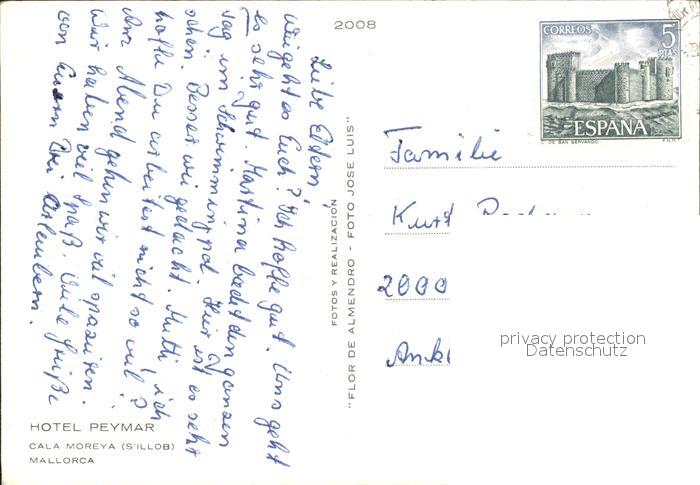 Liebe Eltern!
Wie geht es Euch? Ich hoffe gut. Uns geht
es sehr gut. Martina badet den ganzen
Tag im Schwimmingpol. Hier ist es sehr
schön. Besser wie gedacht. Mutti, ich
hoffe Du arbeitest nicht so viel?
Am Abend gehen wir viel spazieren.
Wir haben viel Spaß. Viele Grüße
von Euern Drei
HOTEL PEYMAR
CALA MOREYA (S'ILLOB)
MALLORCA
2008
FOTOS Y REALIZACION
"FLOR DE ALMENDRO - FOTO JOSE LUIS"
CORREOS 5 PTA
ESPAÑA
C. DE SAN SERVANDO F.N.M.T.
Familie
Kurt
2000
privacy protection
Datenschutz